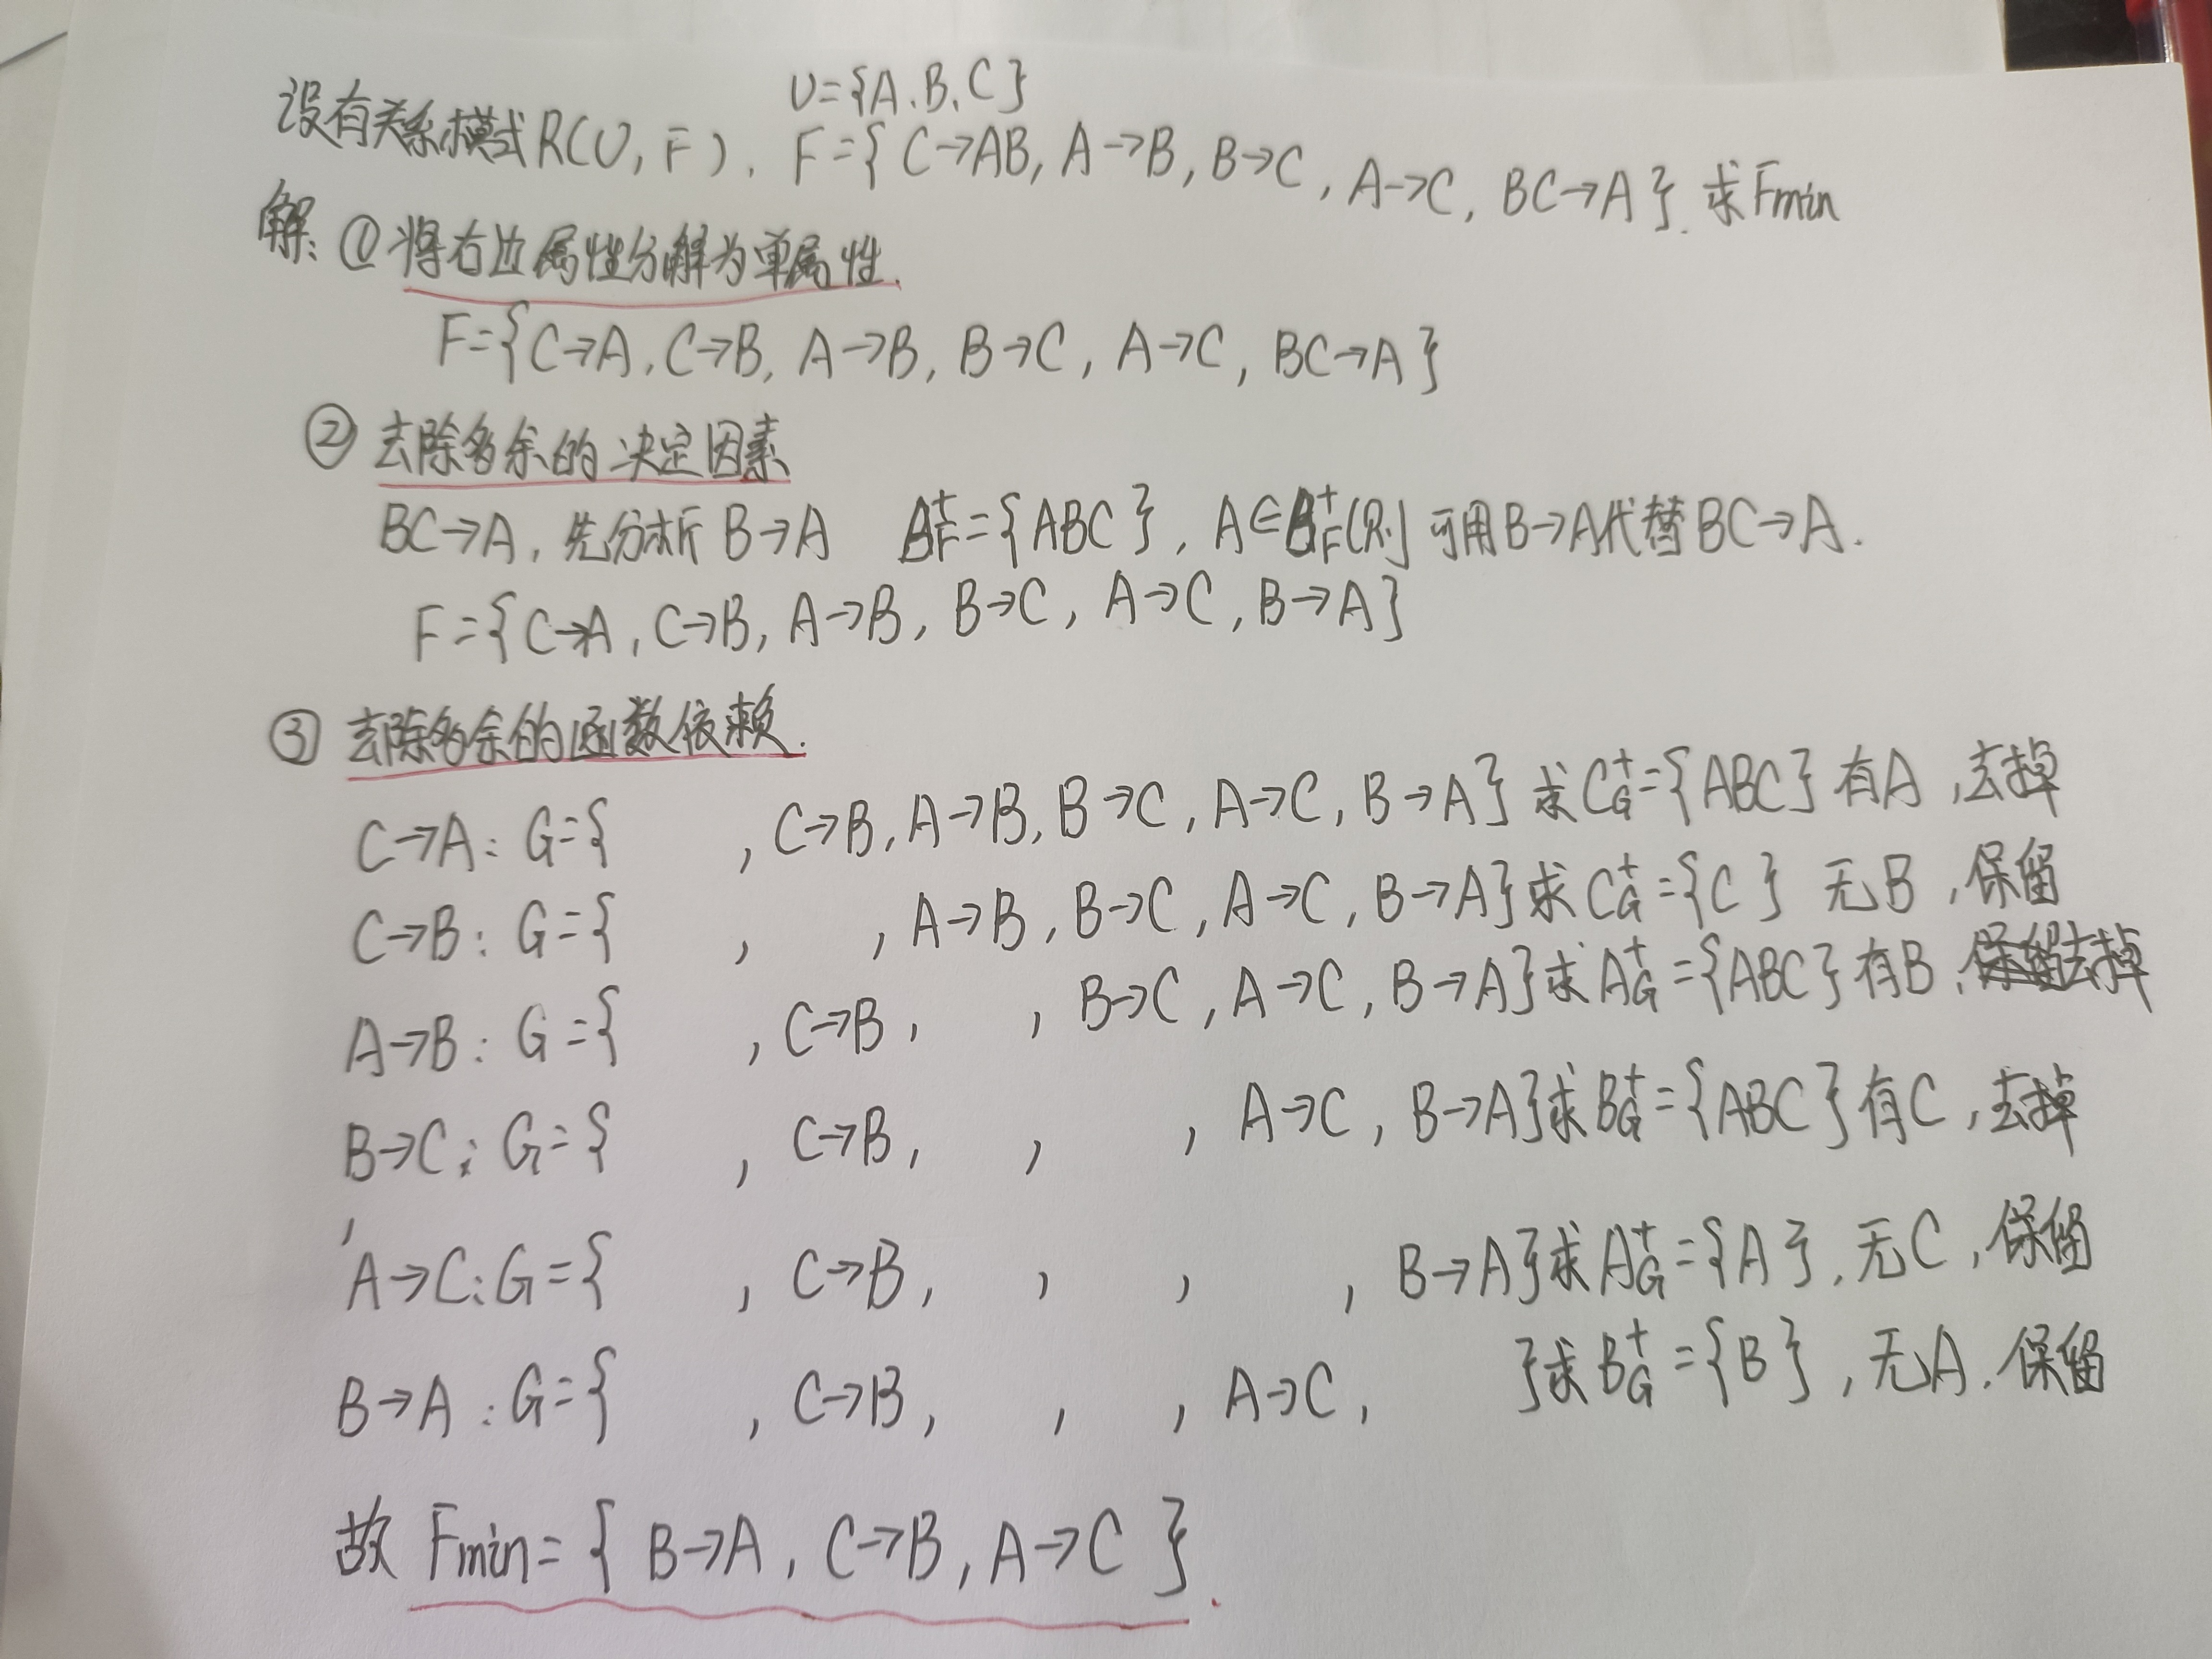 U={A、B、C}
设有关系模式R(U,F), F={C→AB, A→B, B→C, A→C, BC→A}. 求Fmin
解:①将右边属性分解为单属性.
F={C→A, C→B, A→B, B→C, A→C, BC→A}
② 去除多余的决定因素
BC→A, 先分析B→A B⁺F={ABC}, A∈B⁺F(R) 可用B→A代替BC→A.
F={C→A, C→B, A→B, B→C, A→C, B→A}
③ 去除多余的函数依赖.
C→A: G={ , C→B, A→B, B→C, A→C, B→A}求C⁺G={ABC}有A,去掉
C→B: G={ , , A→B, B→C, A→C, B→A}求C⁺G={C} 无B,保留
A→B: G={ , C→B, , B→C, A→C, B→A}求A⁺G={ABC}有B,去掉
B→C: G={ , C→B, , , A→C, B→A}求B⁺G={ABC}有C,去掉
A→C: G={ , C→B, , , , B→A}求A⁺G={A},无C,保留
B→A: G={ , C→B, , , A→C, }求B⁺G={B},无A.保留
故 Fmin={ B→A, C→B, A→C }.